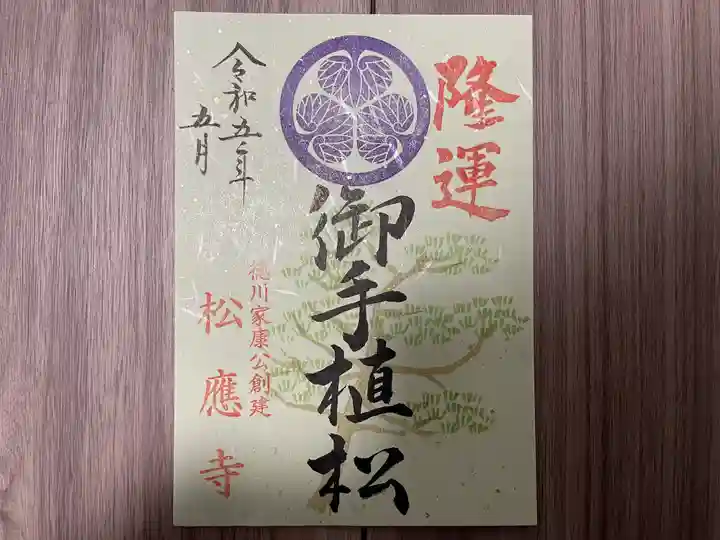 隆運
御手植松
徳川家康公創建
松應寺
令和五年
五月